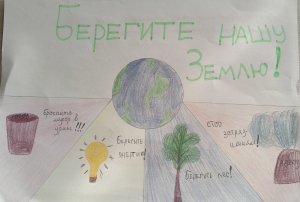 Берегите нашу
Землю!
Бросайте
мусор в
урны!!!
Берегите
энергию!
Берегите лес!
Стоп